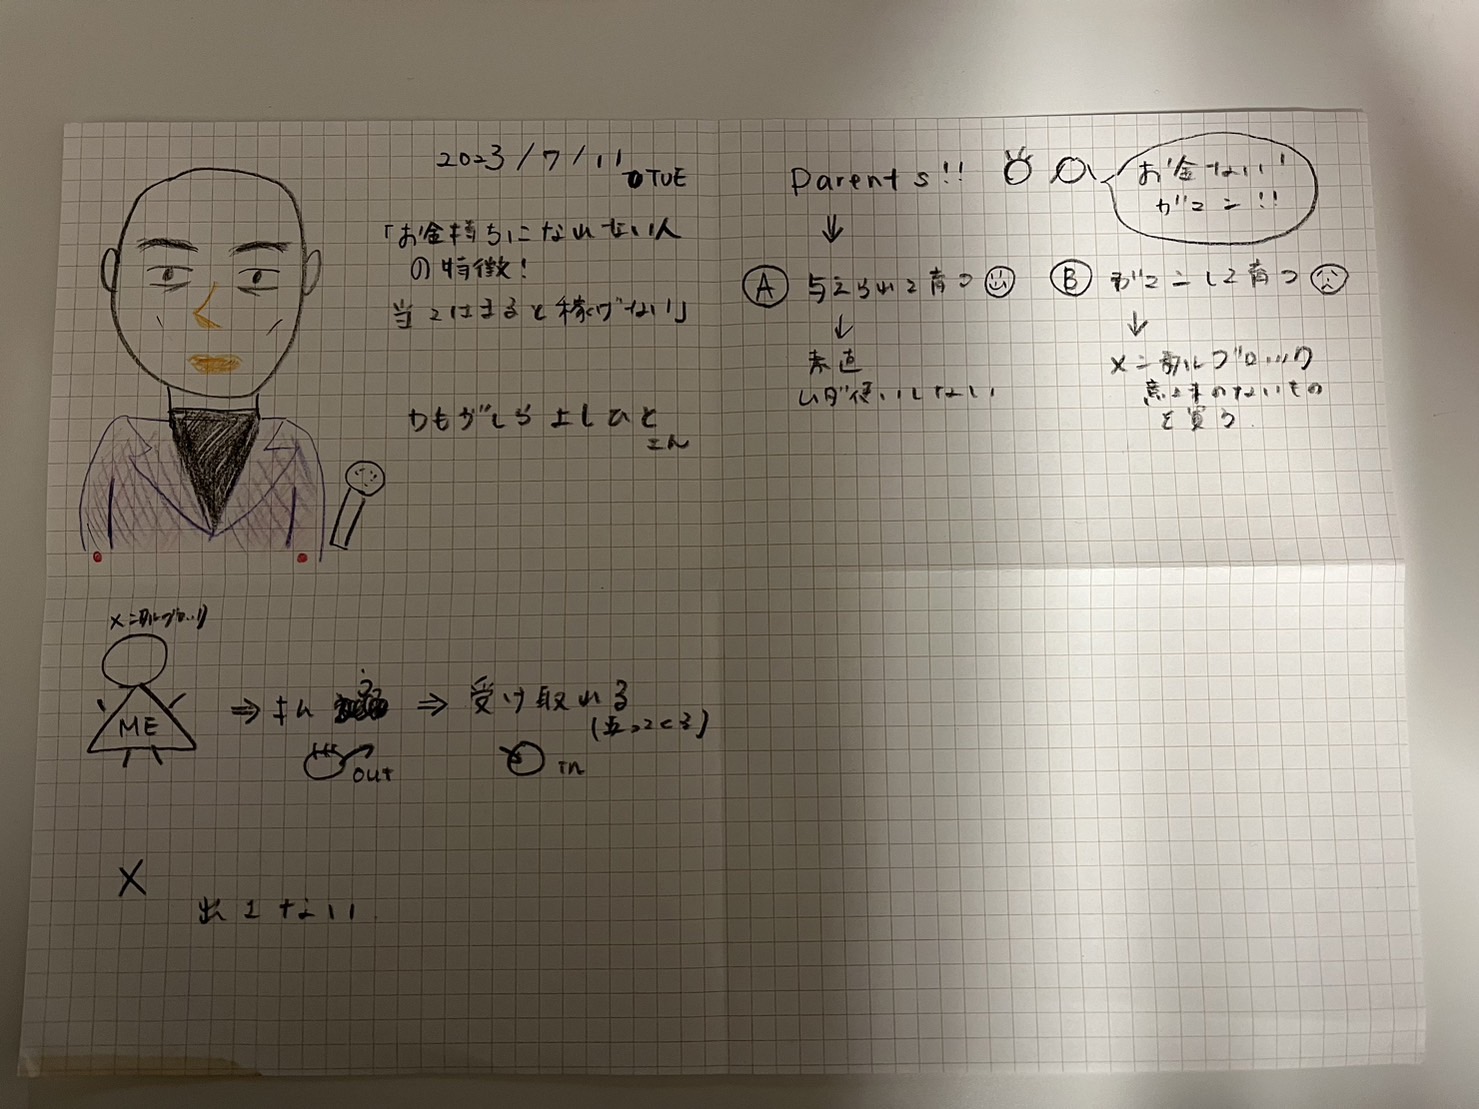 2023/7/11
TUE
「お金持ちになれない人
の特徴!
当てはまると稼げない」
かもがしら よしひと
さん
Parents!!
お金ない!
ガマン!!
A 与えられて育つ
素直
ムダ使いしない
B ガマンして育つ
メンタルブロック
意味のないもの
を買う
メンタルブロック
ME
⇒
⇒ 受け取れる
(立ってくる)
out
in
×
出さない